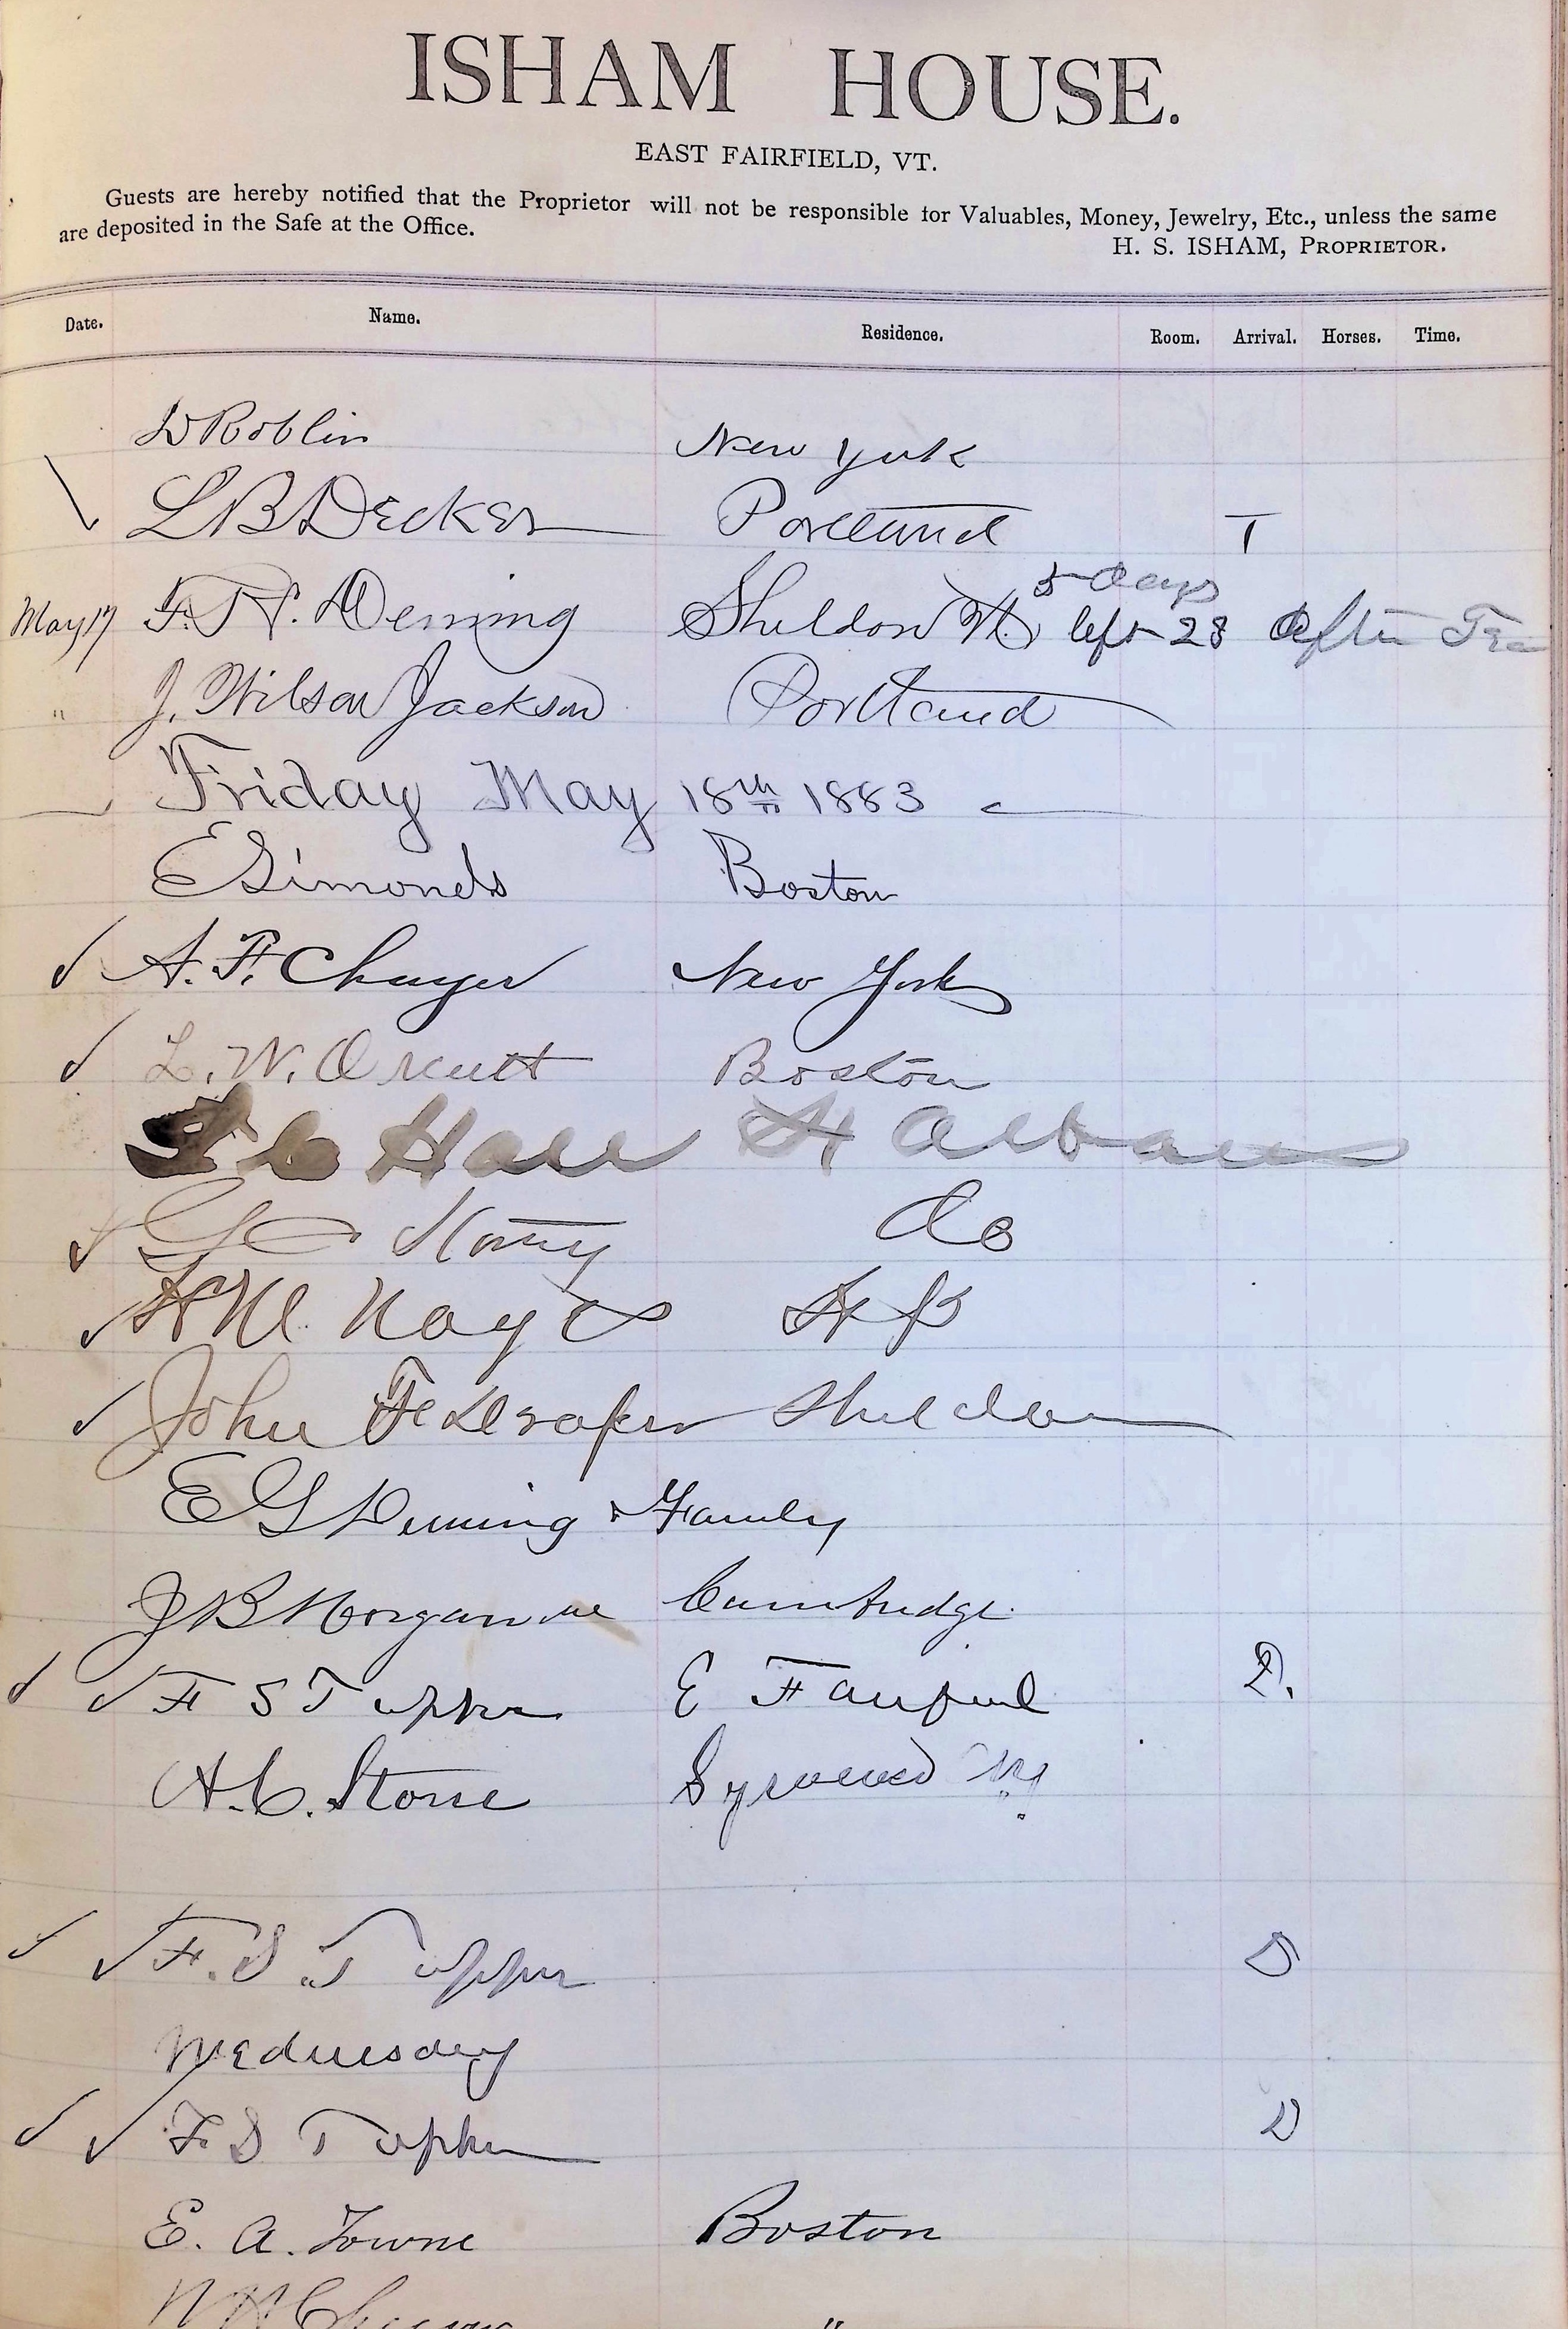 ISHAM HOUSE.
EAST FAIRFIELD, VT.
Guests are hereby notified that the Proprietor will not be responsible for Valuables, Money, Jewelry, Etc., unless the same
are deposited in the Safe at the Office.
H. S. ISHAM, PROPRIETOR.
Date. Name. Residence. Room. Arrival. Horses. Time.
D Roblin New York
L B Decker Portland T
5 days
May 17 Deming Sheldon Vt. left 28 after Tea
" J. Wilson Jackson Portland
Friday May 18th 1883
E Simonds Boston
A. F. Chayer New York
L. W. Orcutt Boston
Hall St Albans
do
Noyes
John Draper Sheldon
E G Deming & Family
J B Morgan Cambridge
F S Tupper E Fairfield D.
A. C. Stone
F. S. Tupper D
Wednesday
F. S Tupper D
E. A. Towne Boston
"